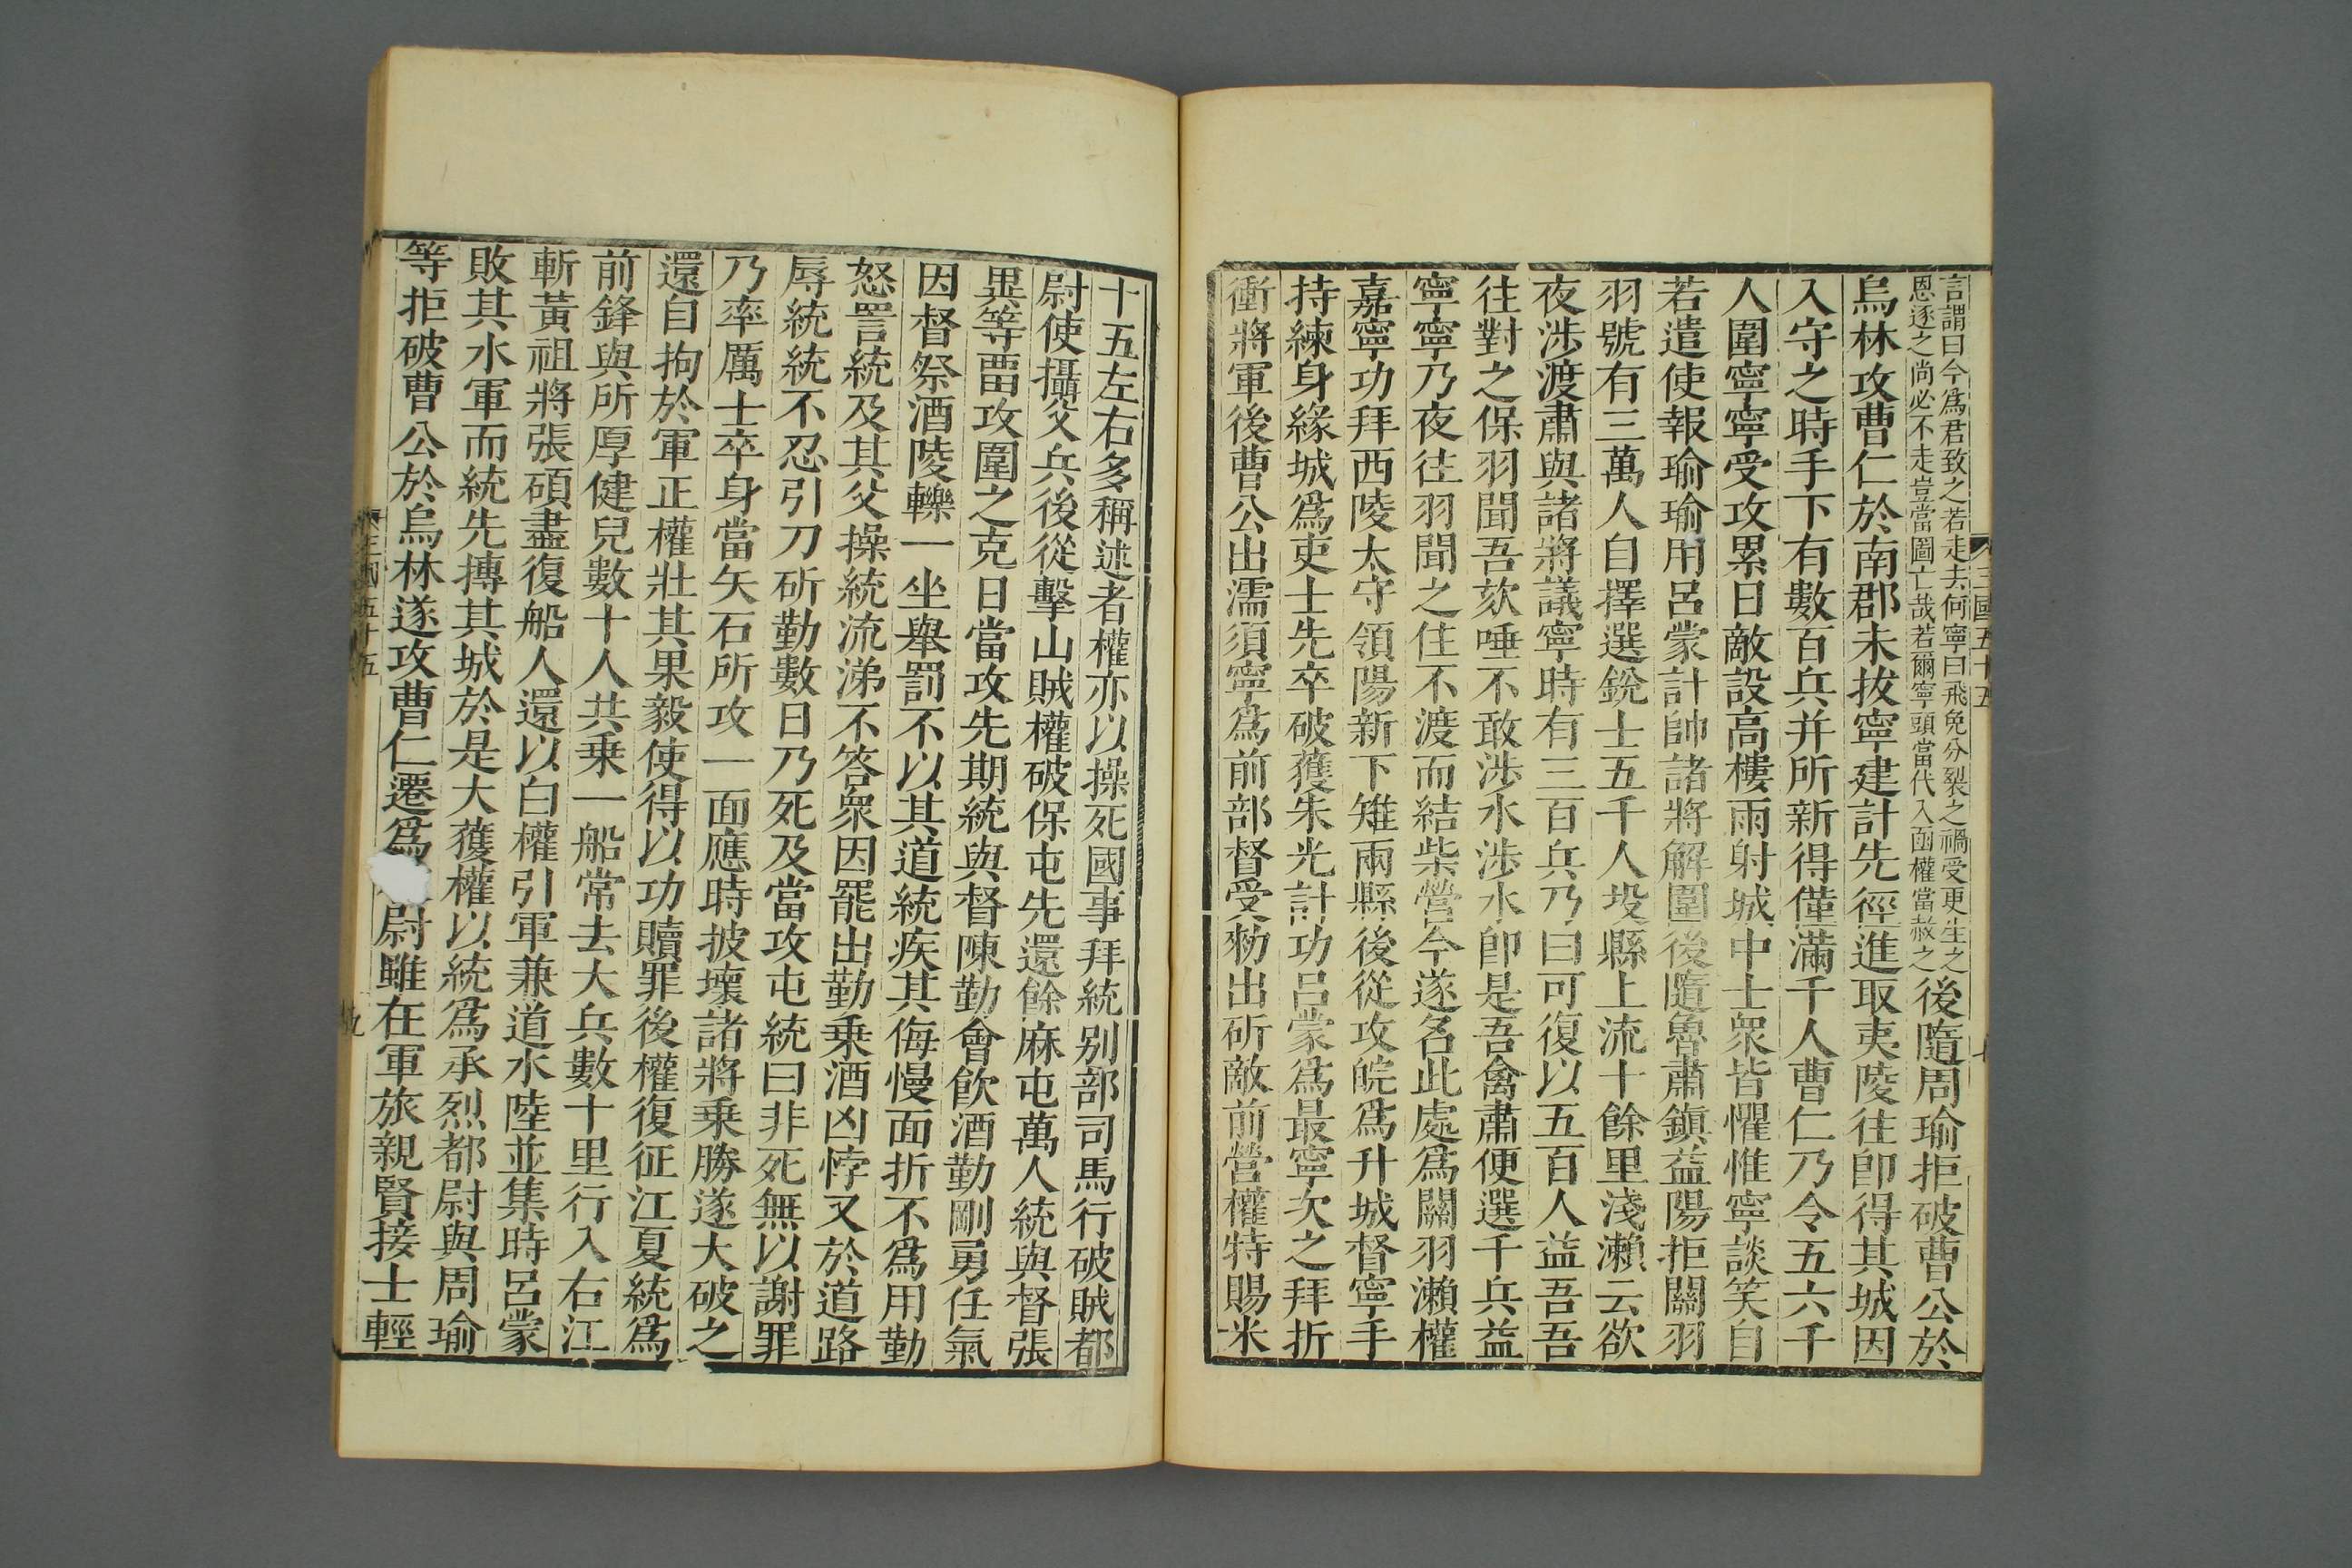 言謂曰今爲君致之若走去何寧曰飛免分裂之禍受更生之
恩逐之尚必不走豈當圖亡哉若爾寧頭當代入函權當赦之
後隨周瑜拒破曹公於
烏林攻曹仁於南郡未拔寧建計先徑進取夷陵往卽得其城因
入守之時手下有數百兵并所新得僅滿千人曹仁乃令五六千
人圍寧寧受攻累日敵設高樓雨射城中士衆皆懼惟寧談笑自
若遣使報瑜瑜用呂蒙計帥諸將解圍後隨魯肅鎭益陽拒關羽
羽號有三萬人自擇選銳士五千人投縣上流十餘里淺瀨云欲
夜涉渡肅與諸將議寧時有三百兵乃曰可復以五百人益吾吾
往對之保羽聞吾欬唾不敢涉水涉水卽是吾禽肅便選千兵益
寧寧乃夜往羽聞之住不渡而結柴營今遂名此處爲關羽瀨權
嘉寧功拜西陵太守領陽新下雉兩縣後從攻皖爲升城督寧手
持練身緣城爲吏士先卒破獲朱光計功呂蒙爲最寧次之拜折
衝將軍後曹公出濡須寧爲前部督受勑出斫敵前營權特賜米
三國五十五
十五左右多稱述者權亦以操死國事拜統別部司馬行破賊都
尉使攝父兵後從擊山賊權破保屯先還餘麻屯萬人統與督張
異等畱攻圍之克日當攻先期統與督陳勤會飲酒勤剛勇任氣
因督祭酒陵轢一坐舉罰不以其道統疾其侮慢面折不爲用勤
怒詈統及其父操統流涕不答衆因罷出勤乗酒凶悖又於道路
辱統統不忍引刀斫勤數日乃死及當攻屯統曰非死無以謝罪
乃率厲士卒身當矢石所攻一面應時披壞諸將乗勝遂大破之
還自拘於軍正權壯其果毅使得以功贖罪後權復征江夏統爲
前鋒與所厚健兒數十人共乗一船常去大兵數十里行入右江
斬黃祖將張碩盡復船人還以白權引軍兼道水陸並集時呂蒙
敗其水軍而統先搏其城於是大獲權以統爲承烈都尉與周瑜
等拒破曹公於烏林遂攻曹仁遷爲尉雖在軍旅親賢接士輕
三國五十五
九